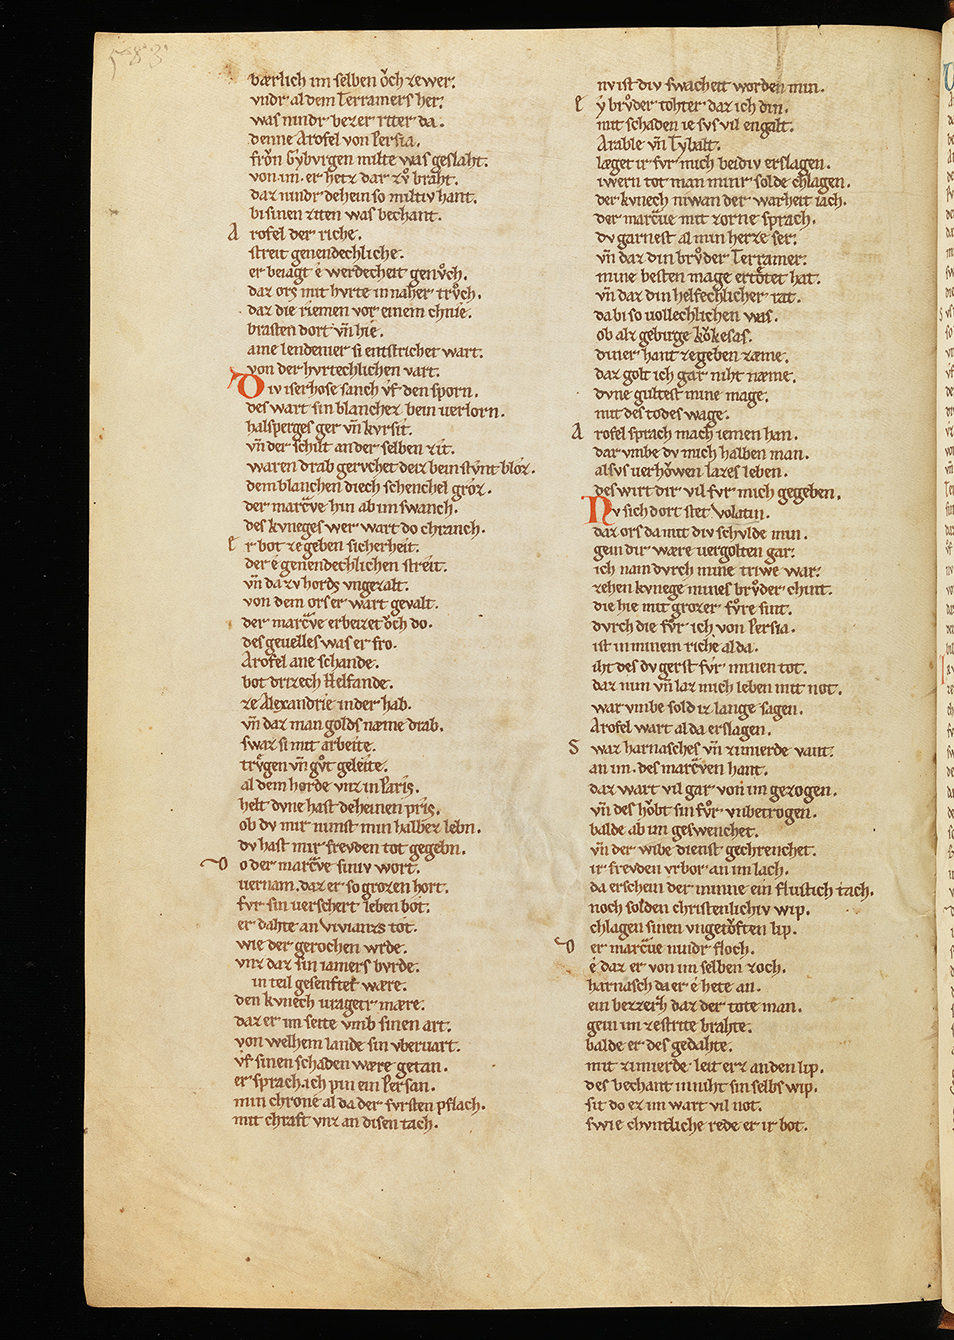 583
værlich im selben och zewer.
vnder al dem Terramers her.
was nindr bezer riter da.
denne Arofel von Persia.
fron Gybvrgen milte was geslaht.
von im. er hetz dar zv braht.
daz nindr dehein so miltiv hant.
bi sinen ziten was bechant.
Arofel der riche.
streit genendechliche.
er beiagt e werdecheit genvch.
daz ors mit hvrte in naher trvch.
daz die riemen vor einem chnie.
brasten dort vn̄ hie.
ame lendenier si entstrichet wart.
von der hvrtechlichen vart.
Div iserhose sanch vf den sporn.
des wart sin blanchez bein verlorn.
halsperges ger vn̄ kvrsit.
vn̄ der schilt an der selben zit.
waren drab gervchet deiz bein stvnt bloz.
dem blanchen diech schenchel groz.
der marcve hin ab im swanch.
des kvneges wer wart do chranch.
Er bot zegeben sicherheit.
der e genendechlichen streit.
vn̄ da zv hords vngezalt.
von dem orser wart gevalt.
der marcve erbeizet och do.
des gevelles was er fro.
Arofel ane schande.
bot drizech Helfande.
ze Alexandrie in der hab.
vn̄ daz man golds næme drab.
swaz si mit arbeite.
trvgen vn̄ gvt geleite.
al dem horde vnz in Paris.
helt dvne hast deheinen pris.
ob dv mir nimst min halbez lebn.
dv hast mir frevden tot gegebn.
Do der marcve siniv wort.
vernam. daz er so grozen hort.
fvr sin verschert leben bot.
er dahte an Vivianzs tot.
wie der gerochen wrde.
vnz daz sin iamers bvrde.
in teil gesenftet wære.
den kvnech vragetr mære.
daz er im seite vmb sinen art.
von welhem lande sin vbervart.
vf sinen schaden wære getan.
er sprach. ich pin ein Persan.
min chrone al da der fvrsten pflach.
mit chraft vnz an disen tach.
nv ist div swacheit worden min.
Ey brvder tohter daz ich din.
mit schaden ie svs vil engalt.
Arable vn̄ Tybalt.
læget ir fvr mich beidiv erslagen.
iwern tot man minr solde chlagen.
der kvnech niwan der warheit iach.
der marcve mit zorne sprach.
dv garnest al min herze ser.
vn̄ daz din brvder Terramer.
mine besten mage ertotet hat.
vn̄ daz din helfechlicher rat.
da bi so vollechlichen was.
ob alz gebirge kokesas.
diner hant zegeben zæme.
daz golt ich gar niht næme.
dvne gvltest mine mage.
mit des todes wage.
Arofel sprach mach iemen han.
dar vmbe dv mich halben man.
alsvs verhowen lazes leben.
des wirt dir vil fvr mich gegeben.
Nv sich dort stet Volatin.
daz ors da mit div schvlde min.
gein dir wære vergolten gar.
ich nam dvrch mine triwe war.
zehen kvnege mines brvder chint.
die hie mit grozer fvre sint.
dvrch die fvr ich von Persia.
ist in minem riche al da.
iht des dv gerst fvr minen tot.
daz nim vn̄ laz mich leben mit not.
war vmbe sold iz lange sagen.
Arofel wart al da erslagen.
Swaz harnasches vn̄ zimierde vant.
an im. des marcven hant.
daz wart vil gar von im gezogen.
vn̄ des hobt sin fvr vnbetrogen.
balde ab im geswenchet.
vn̄ der wibe dienst gechrenchet.
ir frevden vrbor an im lach.
da erschein der minne ein flvstich tach.
noch solden christenlichiv wip.
chlagen sinen vngetoften lip.
Der marcve nindr floch.
e daz er von im selben zoch.
harnasch da er e hete an.
ein bezzerh daz der tote man.
gein im zestrite brahte.
balde er des gedahte.
mit zimierde leit erz an den lip.
des bechant in niht sin selbs wip.
sit do ez im wart vil not.
swie chvntliche rede er ir bot.